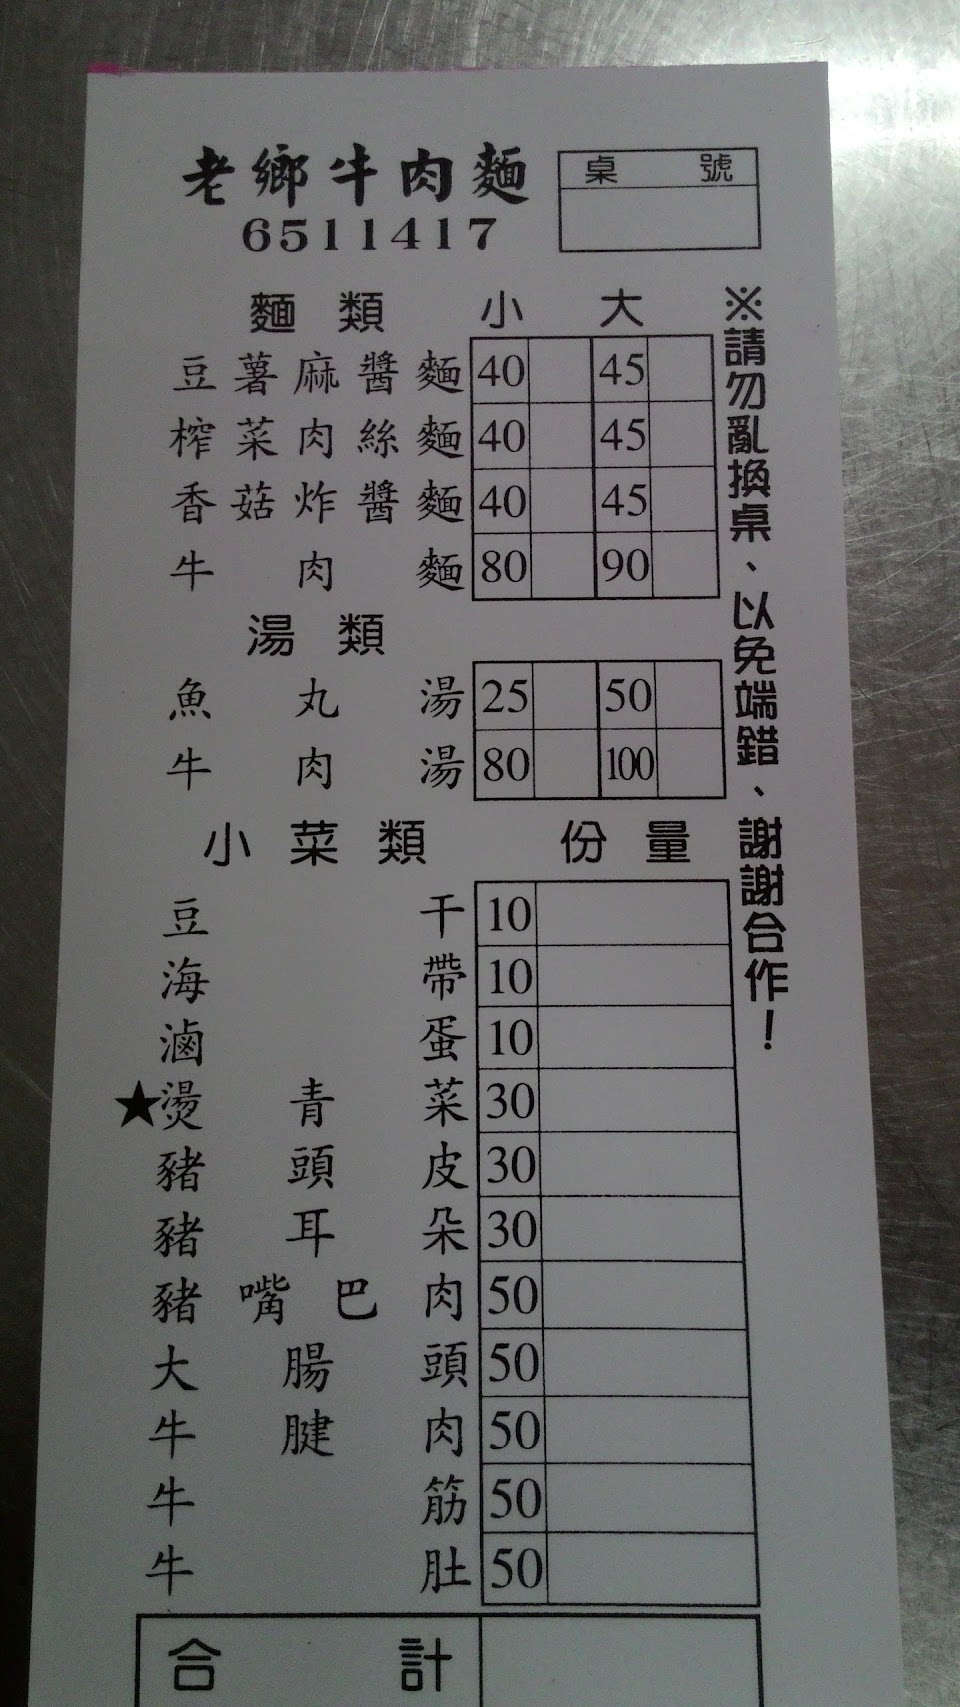 老鄉牛肉麵
6511417
桌號
麵類 小 大
豆薯麻醬麵 40 45
榨菜肉絲麵 40 45
香菇炸醬麵 40 45
牛肉麵 80 90
湯類
魚丸湯 25 50
牛肉湯 80 100
小菜類 份量
豆干 10
海帶 10
滷蛋 10
★燙青菜 30
豬頭皮 30
豬耳朵 30
豬嘴巴肉 50
大腸頭 50
牛腱肉 50
牛筋 50
牛肚 50
合計
※請勿亂換桌、以免端錯、謝謝合作！